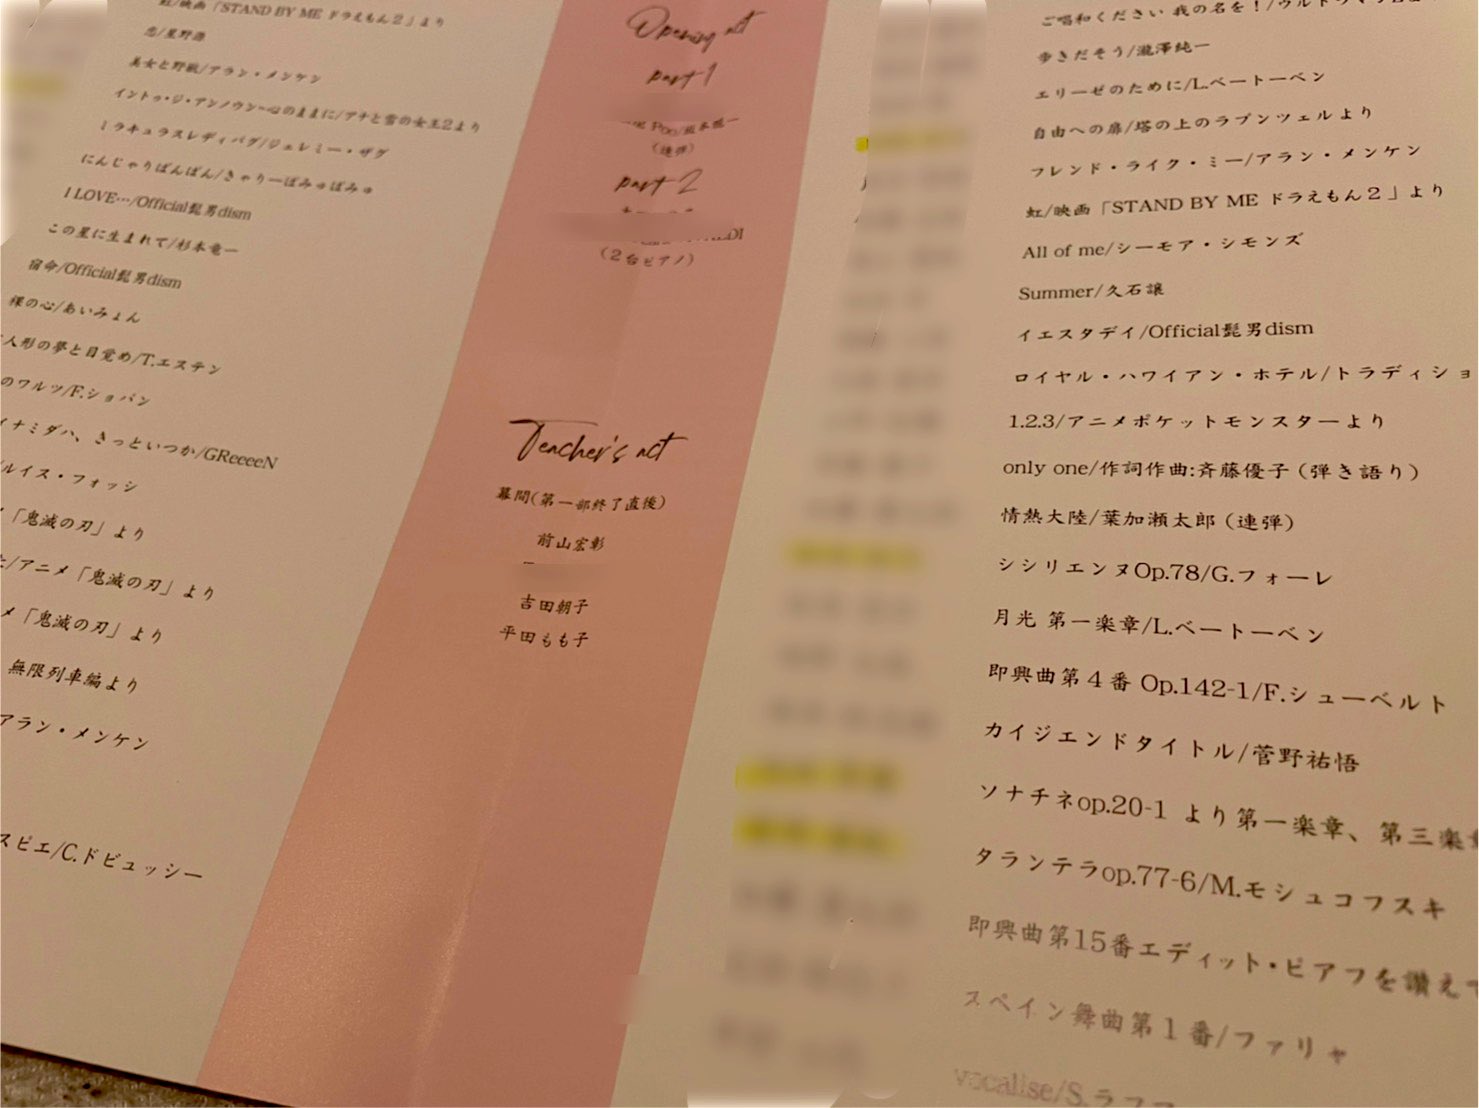 虹/映画「STAND BY ME ドラえもん２」より
恋/星野源
美女と野獣/アラン・メンケン
イントゥ・ジ・アンノウン~心のままに/アナと雪の女王2より
ミラキュラスレディバグ/ジェレミー・ザグ
にんじゃりばんばん/きゃりーぱみゅぱみゅ
I LOVE…/Official髭男dism
この星に生まれて/杉本竜一
宿命/Official髭男dism
裸の心/あいみょん
人形の夢と目覚め/T.エステン
のワルツ/F.ショパン
ナミダハ、きっといつか/GReeeeN
ルイス・フォッシ
「鬼滅の刃」より
/アニメ「鬼滅の刃」より
メ「鬼滅の刃」より
無限列車編より
アラン・メンケン
スピエ/C.ドビュッシー
Opening act
part 1
Poo/坂本龍一
（連弾）
part 2
（２台ピアノ）
Teacher's act
幕間(第一部終了直後)
前山宏彰
吉田朝子
平田もも子
ご唱和ください 我の名を！/ウルトラマン
歩きだそう/瀧澤純一
エリーゼのために/L.ベートーベン
自由への扉/塔の上のラプンツェルより
フレンド・ライク・ミー/アラン・メンケン
虹/映画「STAND BY ME ドラえもん２」より
All of me/シーモア・シモンズ
Summer/久石譲
イエスタデイ/Official髭男dism
ロイヤル・ハワイアン・ホテル/トラディショ
1.2.3/アニメポケットモンスターより
only one/作詞作曲:斉藤優子（弾き語り）
情熱大陸/葉加瀬太郎（連弾）
シシリエンヌOp.78/G.フォーレ
月光 第一楽章/L.ベートーベン
即興曲第４番 Op.142-1/F.シューベルト
カイジエンドタイトル/菅野祐悟
ソナチネop.20-1 より第一楽章、第三楽章
タランテラop.77-6/M.モシュコフスキ
即興曲第15番エディット・ピアフを讃えて
スペイン舞曲第１番/ファリャ
vocalise/S.ラフマ